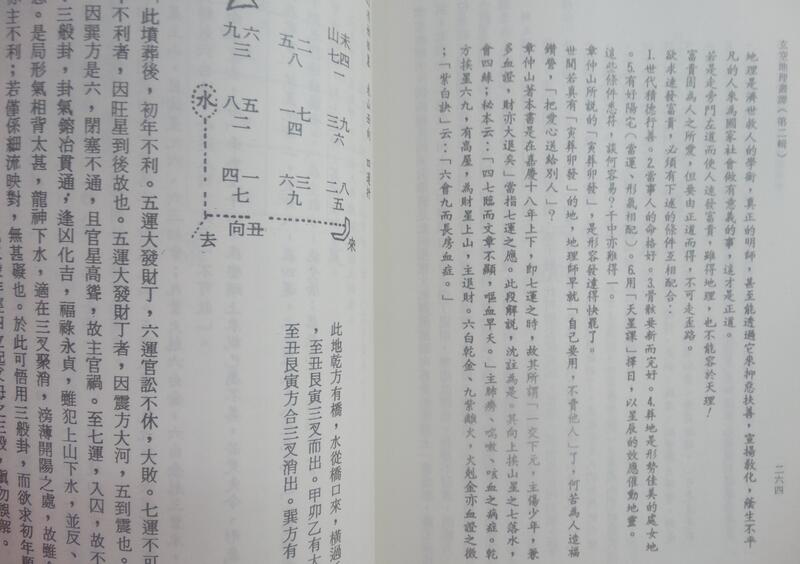 玄空地理叢譚（第二輯）
二六四
地理是濟世救人的學術，真正的明師，甚至能透過它來抑惡扶善，宣揚教化，蔭生不平
凡的人來為國家社會做有意義的事，這才是正道。
若是走旁門左道而使人速發富貴，雖得地理，也不能容於天理！
富貴固為人之所愛，但要由正道而得，不可走歪路。
欲求速發富貴，必須有下述的條件互相配合：
1.世代積德行善。2.當事人的命格好。3.骨骸要新而完好。4.葬地是形勢佳美的處女地
。5.有好陽宅（當運、形氣相配）。6.用「天星課」擇日，以星辰的效應催動地靈。
這些條件悉符，談何容易？千中亦難得一。
章仲山所說的「寅葬卯發」，是形容發達得快罷了。
世間若真有「寅葬卯發」的地，地理師早就「自己要用，不賣他人」了，何苦為人造福
鑽營，「把愛心送給別人」？
章仲山著本書是在嘉慶十八年上下，即七運之時，故其所謂「一交下元，主傷少年，兼
多血證，財亦大退矣」當指七運之應。此段解說，沈註為是。其向上挨山星之七落水，
會四綠；秘本云：「四七臨而文章不顯，嘔血早夭。」主肺癆、喘嗽、咳血之病症。乾
方挨星六九，有高屋，為財星上山，主退財。六白乾金、九紫離火，火剋金亦血證之徵
；「紫白訣」云：「六會九而長房血症。」
未四一
山七
九六
三
八
二五
二
五八
一四
七
三
六九
六
九三
五
八二
一
四七
水
去
向丑
來
此地乾方有橋，水從橋口來，橫過
，至丑艮寅三叉而出。甲卯乙有大
至丑艮寅方合三叉消出。巽方有
此墳葬後，初年不利。五運大發財丁，六運官訟不休，大敗。七運不可
不利者，因旺星到後故也。五運大發財丁者，因震方大河，五到震也。
因巽方是六，閉塞不通，且官星高聳，故主官禍。至七運，入囚，故不
三般卦，卦氣鎔冶貫通；逢凶化吉，福祿永貞，雖犯上山下水，並反、
忌。是局形氣相背太甚，龍神下水，適在三叉聚消，滂薄開陽之處，故雖
主不利；若僅係細流映對，無甚礙也。於此可悟用三般卦，而欲求初年順